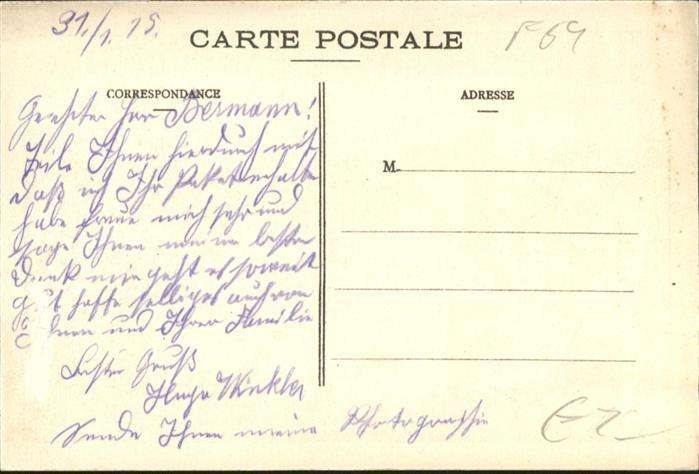 31./1. 15.
CARTE POSTALE
F 69
CORRESPONDANCE
ADRESSE
M.
Geehrter Herr Bermann!
Teile Ihnen hierdurch mit
daß ich Ihr Paket erhalten
habe freue mich sehr und
sage Ihnen meinen besten
Dank mir geht es soweit
gut hoffe selbiges auch von
Ihnen und Ihrer Familie
Bester Gruß
Hugo Winkler
Sende Ihnen meine Photographie